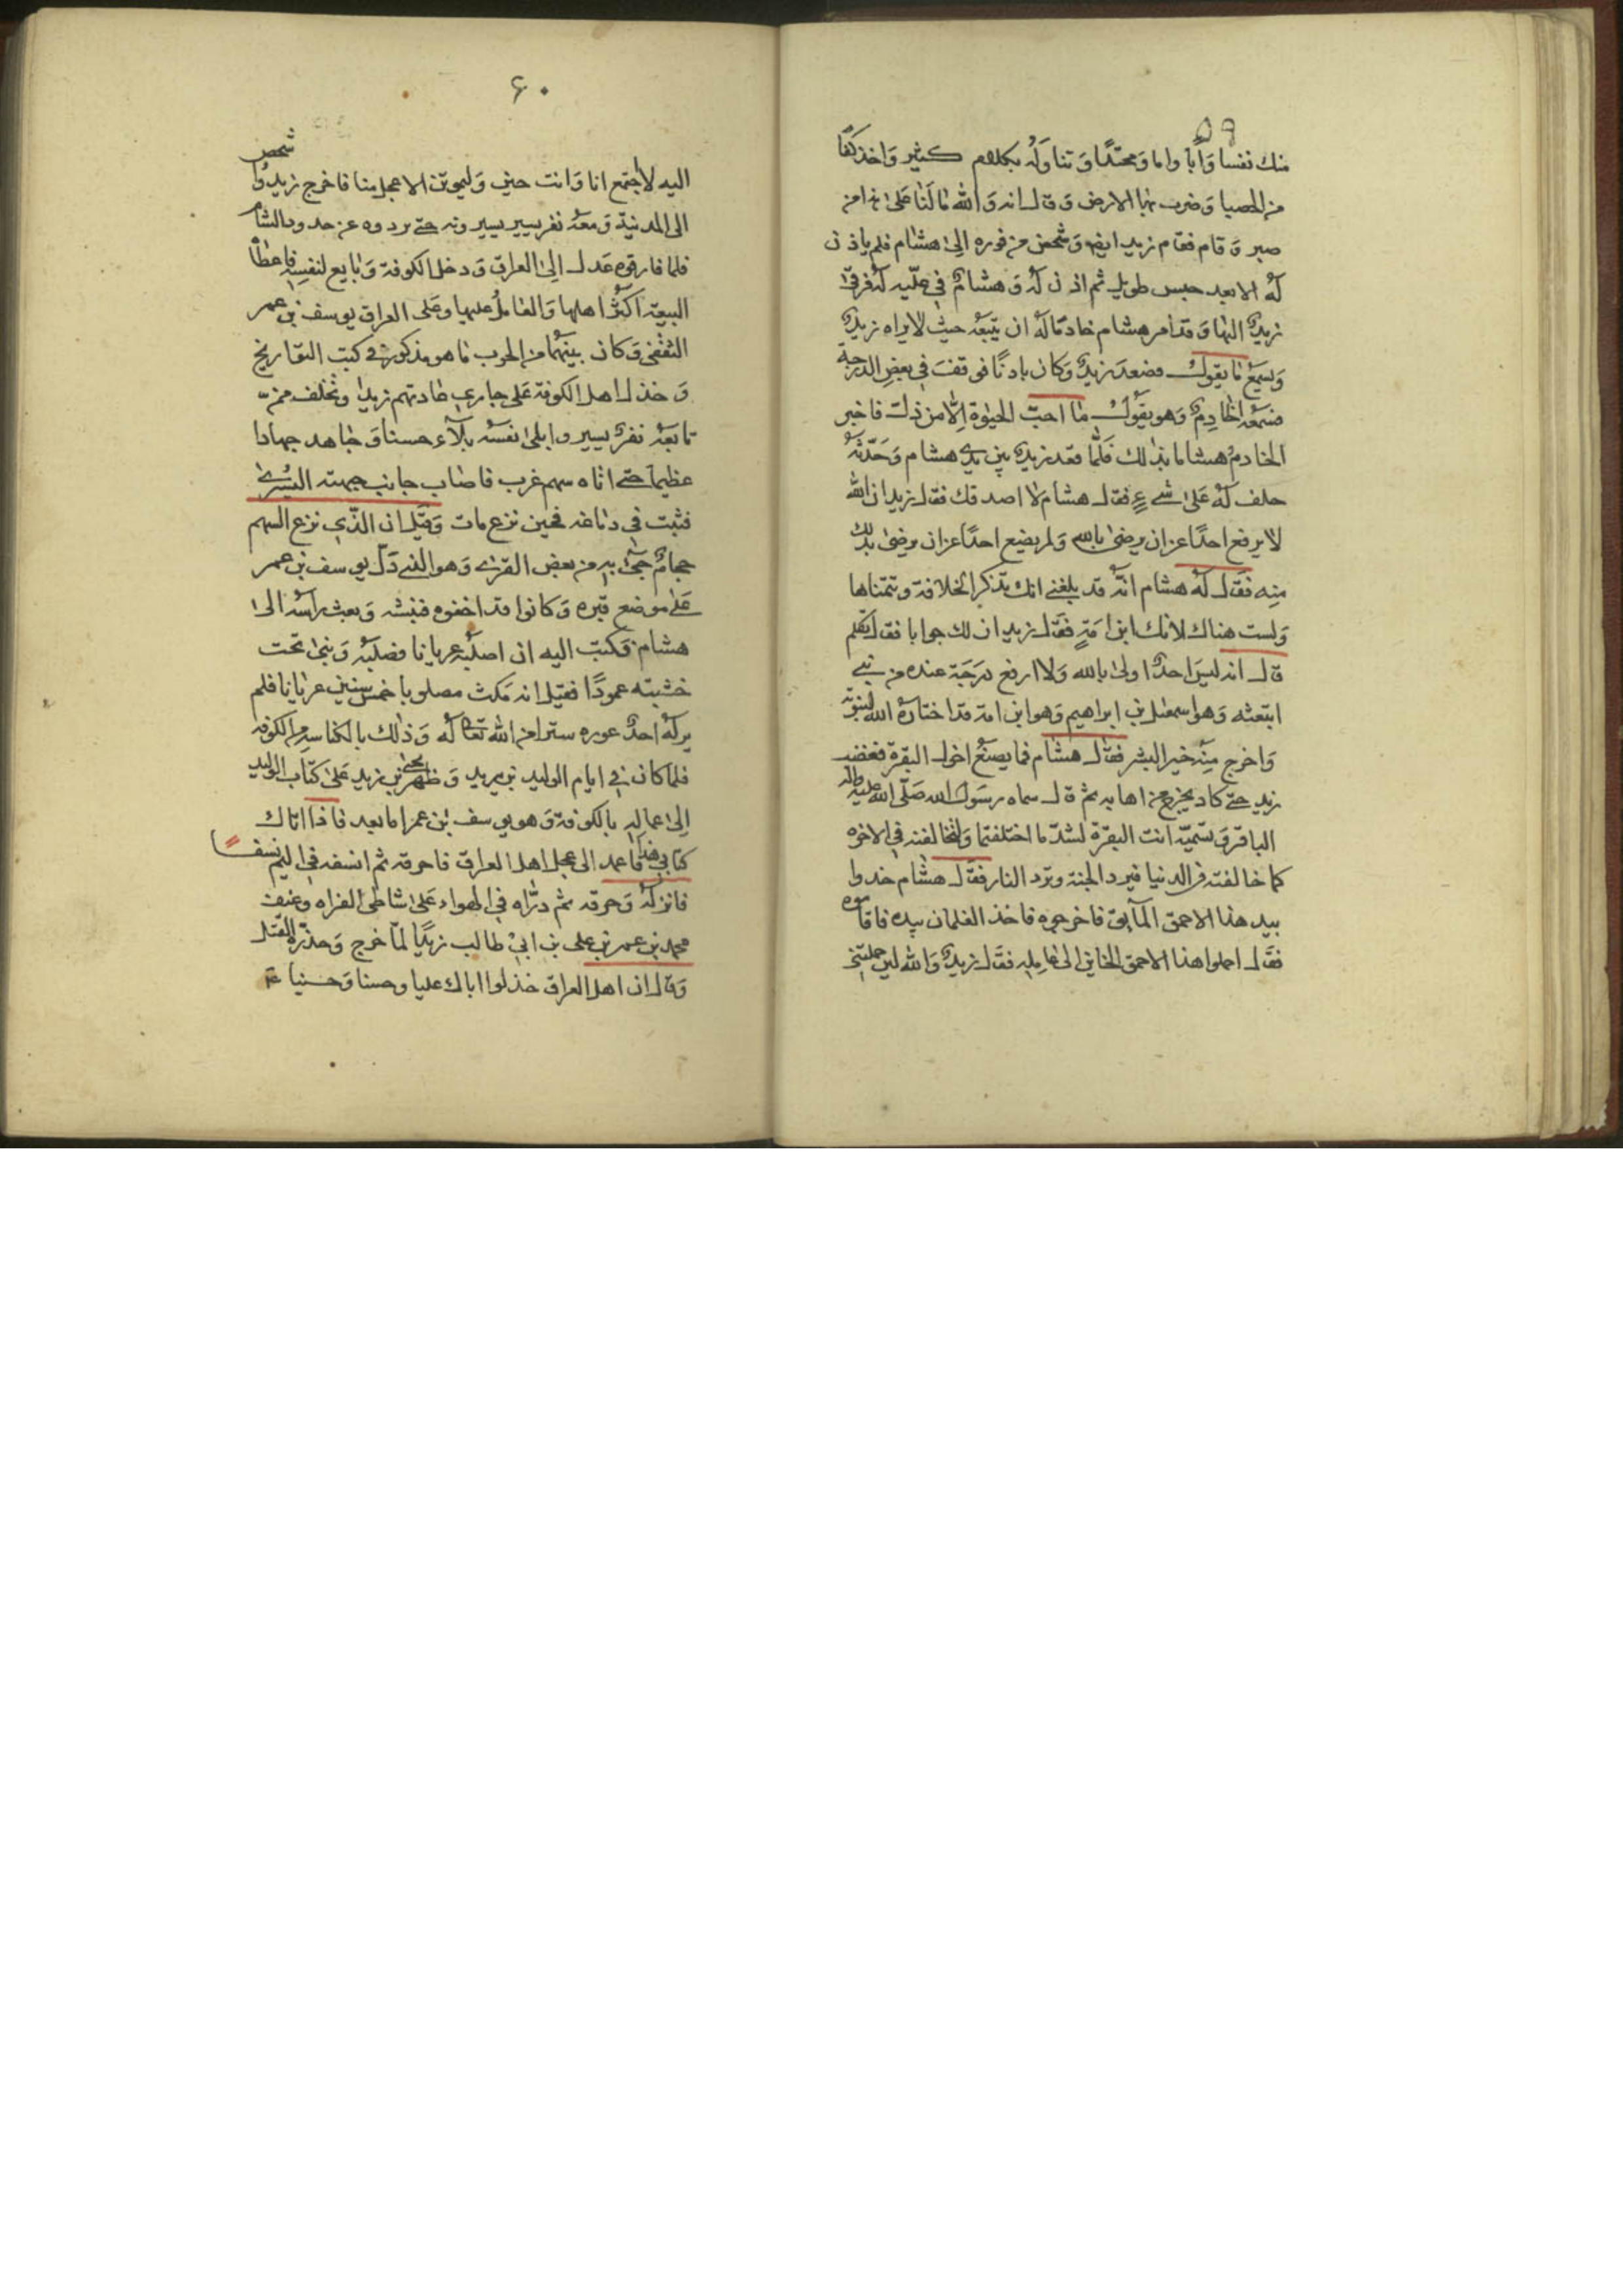 ٥٩
منك نفسا وَأبا واما ومحتدًا وَتناوَله بكلام كثير وَاخذ كفّا
من الحصبا وَضرب بها الارض وَقال انه وَالله مَا لَنا عَلى هذا من
صبر وَقام فقام زيد ايضا وَشخص من فوره إلى هشام فلم ياذن
لهُ الا بعد حبس طويل ثم اذن لهُ وَهشامٌ في عليّه لهُ فرقىٰ
زيدٌ اليها وَقد امر هشام خادمًا لهُ ان يتبعَهُ حيث لا يراه زيدٌ
وَيسمعُ مَا يقول فصعدَ زيدٌ وَكان بادنًا فوقفَ في بعض الدرجة
فسَمعهُ الخادِمُ وَهو يقول مَا احبّ الحيوة إلّا من ذلت فاخبر
الخادمُ هشاما بذلك فَلمّا قعد زيدٌ بين يدي هشام وَحَدّثهُ
حلف لهُ عَلى شيءٍ فقال هشام لا اصدقك فقال زيد ان الله
لا يرفع احدًا عن ان يرضى بالله وَلم يضع احدًا عن ان يرضى بذلك
منه فقال لهُ هشام انهُ قد بلغني انك تذكر الخلافة وتتمناها
وَلست هناك لانك ابن امَةٍ فقال زيد ان لك جوابا فقال تكلم
قال انه ليسَ احدٌ اولى بالله وَلا ارفع دَرَجَة عنده من نبي
ابتعثه وَهو اسمعيل بن ابراهيم وَهو ابن امة قد اختارهُ الله لنبوته
وَاخرج مِنهُ خير البشر فقال هشام فما يصنعُ اخوك البقرة فغضب
زيد حتى كاد يخرج من اهابه ثم قال سماه رسَول الله صَلّى الله عليه وآله
الباقر وَتسمّيه انت البقرة لشدّ ما اختلفتما وَلتخالفنه في الاخره
كما خالفته في الدنيا فيرد الجنة وترد النار فقال هشام خدوا
بيد هذا الاحمق المآيق فاخرجوه فاخذ الغلمان بيده فاقاموه
فقال احملوا هذا الاحمق الخاين الى عامِله فقال زيدٌ وَالله لين حملتني
٦٠
اليه لا اجتمع انا وَانت حيين وَليموتن الاعجل منا فاخرج زيد وَاشخص
الى المدينة وَمعَهُ نفر يسير يسيرونه حتى يردوه عن حدود الشام
فلما فارقوه عَدل إلى العراق وَدخل الكوفة وَبايع لنفسِه فاعطاهُ
البيعة اكثرُ اهلها وَالعَامِلُ عليها وعلى العراق يوسف بن عمر
الثقفي وَكان بينهُما من الحرب مَا هو مذكور في كتب التواريخ
وَخذل اهل الكوفة عَلى جاري عَادتهم زيدًا وتخلف ممن
تابعَهُ نفرٌ يسير وابلى نفسَه بلآء حسنا وَجاهد جهادا
عظيمًا حتى اتاه سهم غرب فاصاب جانب جبهته اليُسرى
فثبت في دمَاغه فحين نزع مات وَقيل ان الذي نزع السهم
حجامٌ جيءَ بهِ من بعض القرى وَهو الذي دَلّ يوسف بن عمر
عَلى موضع قبره وَكانوا قد اخفوه فنبشه وَبعث براسه الى
هشام وَكتب اليه ان اصلبْه عريانا فصلبَه وَبنى تحت
خشبته عمودًا فقيل انه مكث مصلوبا خمس سنين عريانا فلم
ير لهُ احدٌ عوره سترا من الله تعَالى لهُ وَذلك بالكناسه من الكوفه
فلما كان في ايام الوليد بن يزيد وَظهر يحيى بن زيد عَلى كتاب الوليد
إلى عماله بالكوفة وَهو يوسف بن عمر اما بعد فاذا اتاك
كتابي هذا فاعمد الى عجل اهل العراق فاحرقه ثم انسفه في اليم نسفا
فانزلهُ وَحرقه ثم ذرّاه في الهواء عَلى شاطئ الفراه وعنف
محمد بن عمر بن علي بن ابيْ طالب زيدًا لمّا خرج وَحذّرهُ القتل
وَقال ان اهل العراق خذلوا اباك عليا وحسنا وَحسنيا